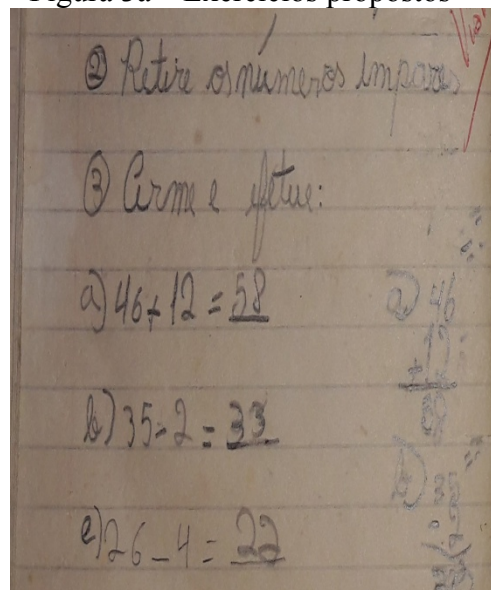 Figura 3a – Exercícios propostos
② Retire os números ímpares
③ Arme e efetue:
a) 46 + 12 = 58
b) 35 - 2 = 33
c) 26 - 4 = 22
a) 46
+ 12
58
b) 35